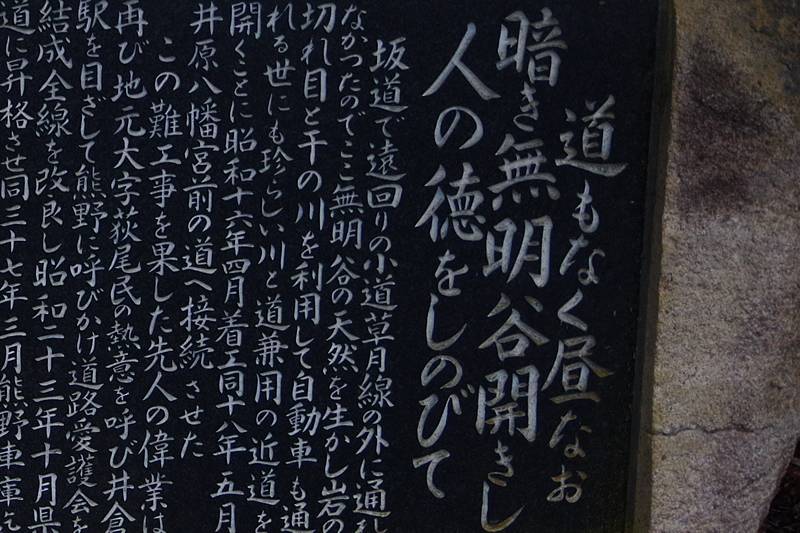 道もなく昼なお
暗き無明谷開きし
人の徳をしのびて
坂道で遠回りの小道草月線の外に通し
なかったのでここ無明谷の天然を生かし岩の
切れ目と干の川を利用して自動車も通
れる世にも珍らしい川と道兼用の近道を
開くことに昭和十六年四月着工同十八年五月
井原八幡宮前の道へ接続させた
この難工事を果した先人の偉業は
再び地元大字荻尾民の熱意を呼び井倉
駅を目ざして熊野に呼びかけ道路愛護会を
結成全線を改良し昭和二十三年十月県
道に昇格させ同三十七年三月熊野車庫迄